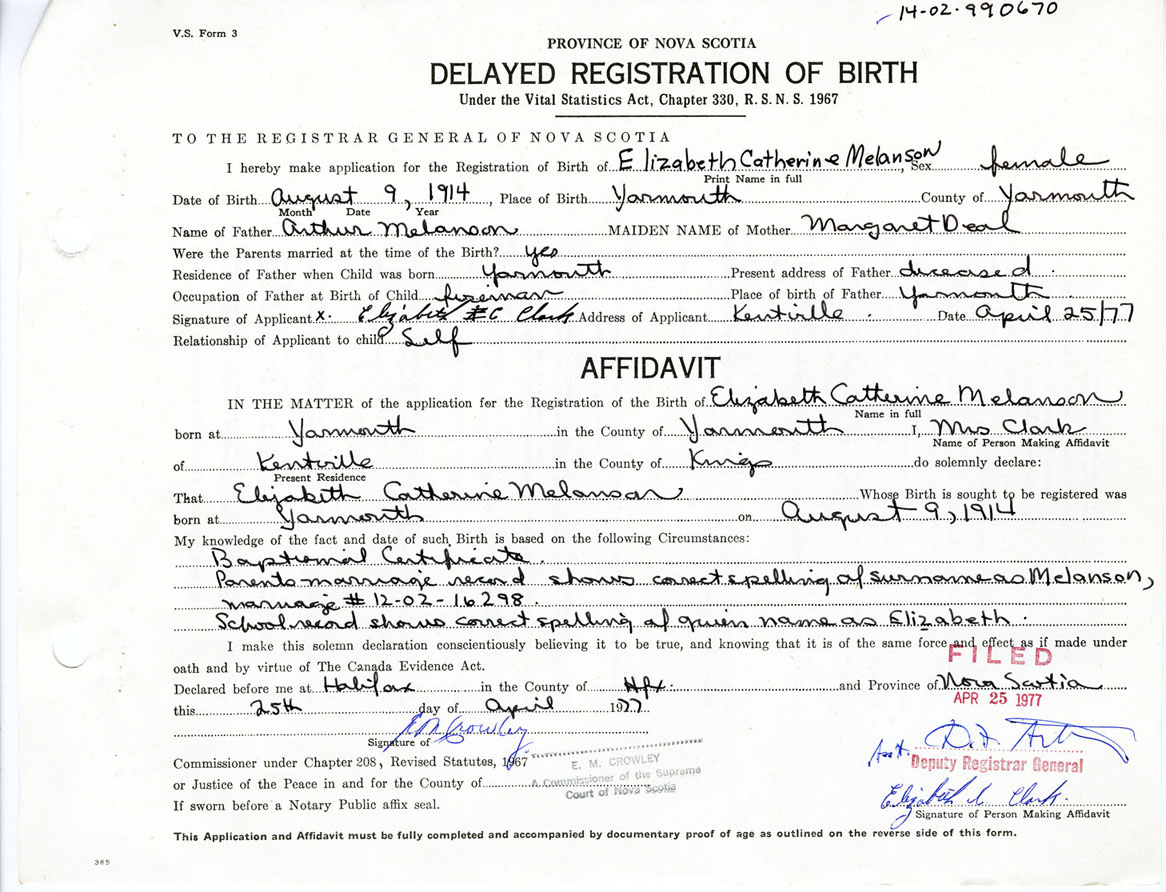 14-02-990670
V.S. Form 3
PROVINCE OF NOVA SCOTIA
DELAYED REGISTRATION OF BIRTH
Under the Vital Statistics Act, Chapter 330, R. S. N. S. 1967
TO THE REGISTRAR GENERAL OF NOVA SCOTIA
I hereby make application for the Registration of Birth of Elizabeth Catherine Melanson, Sex female
Print Name in full
Date of Birth August 9, 1914, Place of Birth Yarmouth County of Yarmouth
Month Date Year
Name of Father Arthur Melanson MAIDEN NAME of Mother Margaret Deal
Were the Parents married at the time of the Birth? yes
Residence of Father when Child was born Yarmouth Present address of Father diceased.
Occupation of Father at Birth of Child fireman Place of birth of Father Yarmouth
Signature of Applicant X. Elizabeth C Clark Address of Applicant Kentville. Date April 25/77
Relationship of Applicant to child Self
AFFIDAVIT
IN THE MATTER of the application for the Registration of the Birth of Elizabeth Catherine Melanson
Name in full
born at Yarmouth in the County of Yarmouth I, Mrs Clark
Name of Person Making Affidavit
of Kentville in the County of Kings do solemnly declare:
Present Residence
That Elizabeth Catherine Melanson Whose Birth is sought to be registered was
born at Yarmouth on August 9, 1914
My knowledge of the fact and date of such Birth is based on the following Circumstances:
Baptismal Certificate.
Parents marriage record shows correct spelling of surname as Melanson,
marriage # 12-02-16298.
School record shows correct spelling of given name as Elizabeth.
I make this solemn declaration conscientiously believing it to be true, and knowing that it is of the same force and effect as if made under
oath and by virtue of The Canada Evidence Act.
FILED
Declared before me at Halifax in the County of Hfx. and Province of Nova Scotia
APR 25 1977
this 25th day of April 1977
E M Crowley
Signature of
Commissioner under Chapter 208, Revised Statutes, 1967
E. M. CROWLEY
Ass't. Deputy Registrar General
or Justice of the Peace in and for the County of
A Commissioner of the Supreme
Court of Nova Scotia
Elizabeth C Clark.
If sworn before a Notary Public affix seal.
Signature of Person Making Affidavit
This Application and Affidavit must be fully completed and accompanied by documentary proof of age as outlined on the reverse side of this form.
385